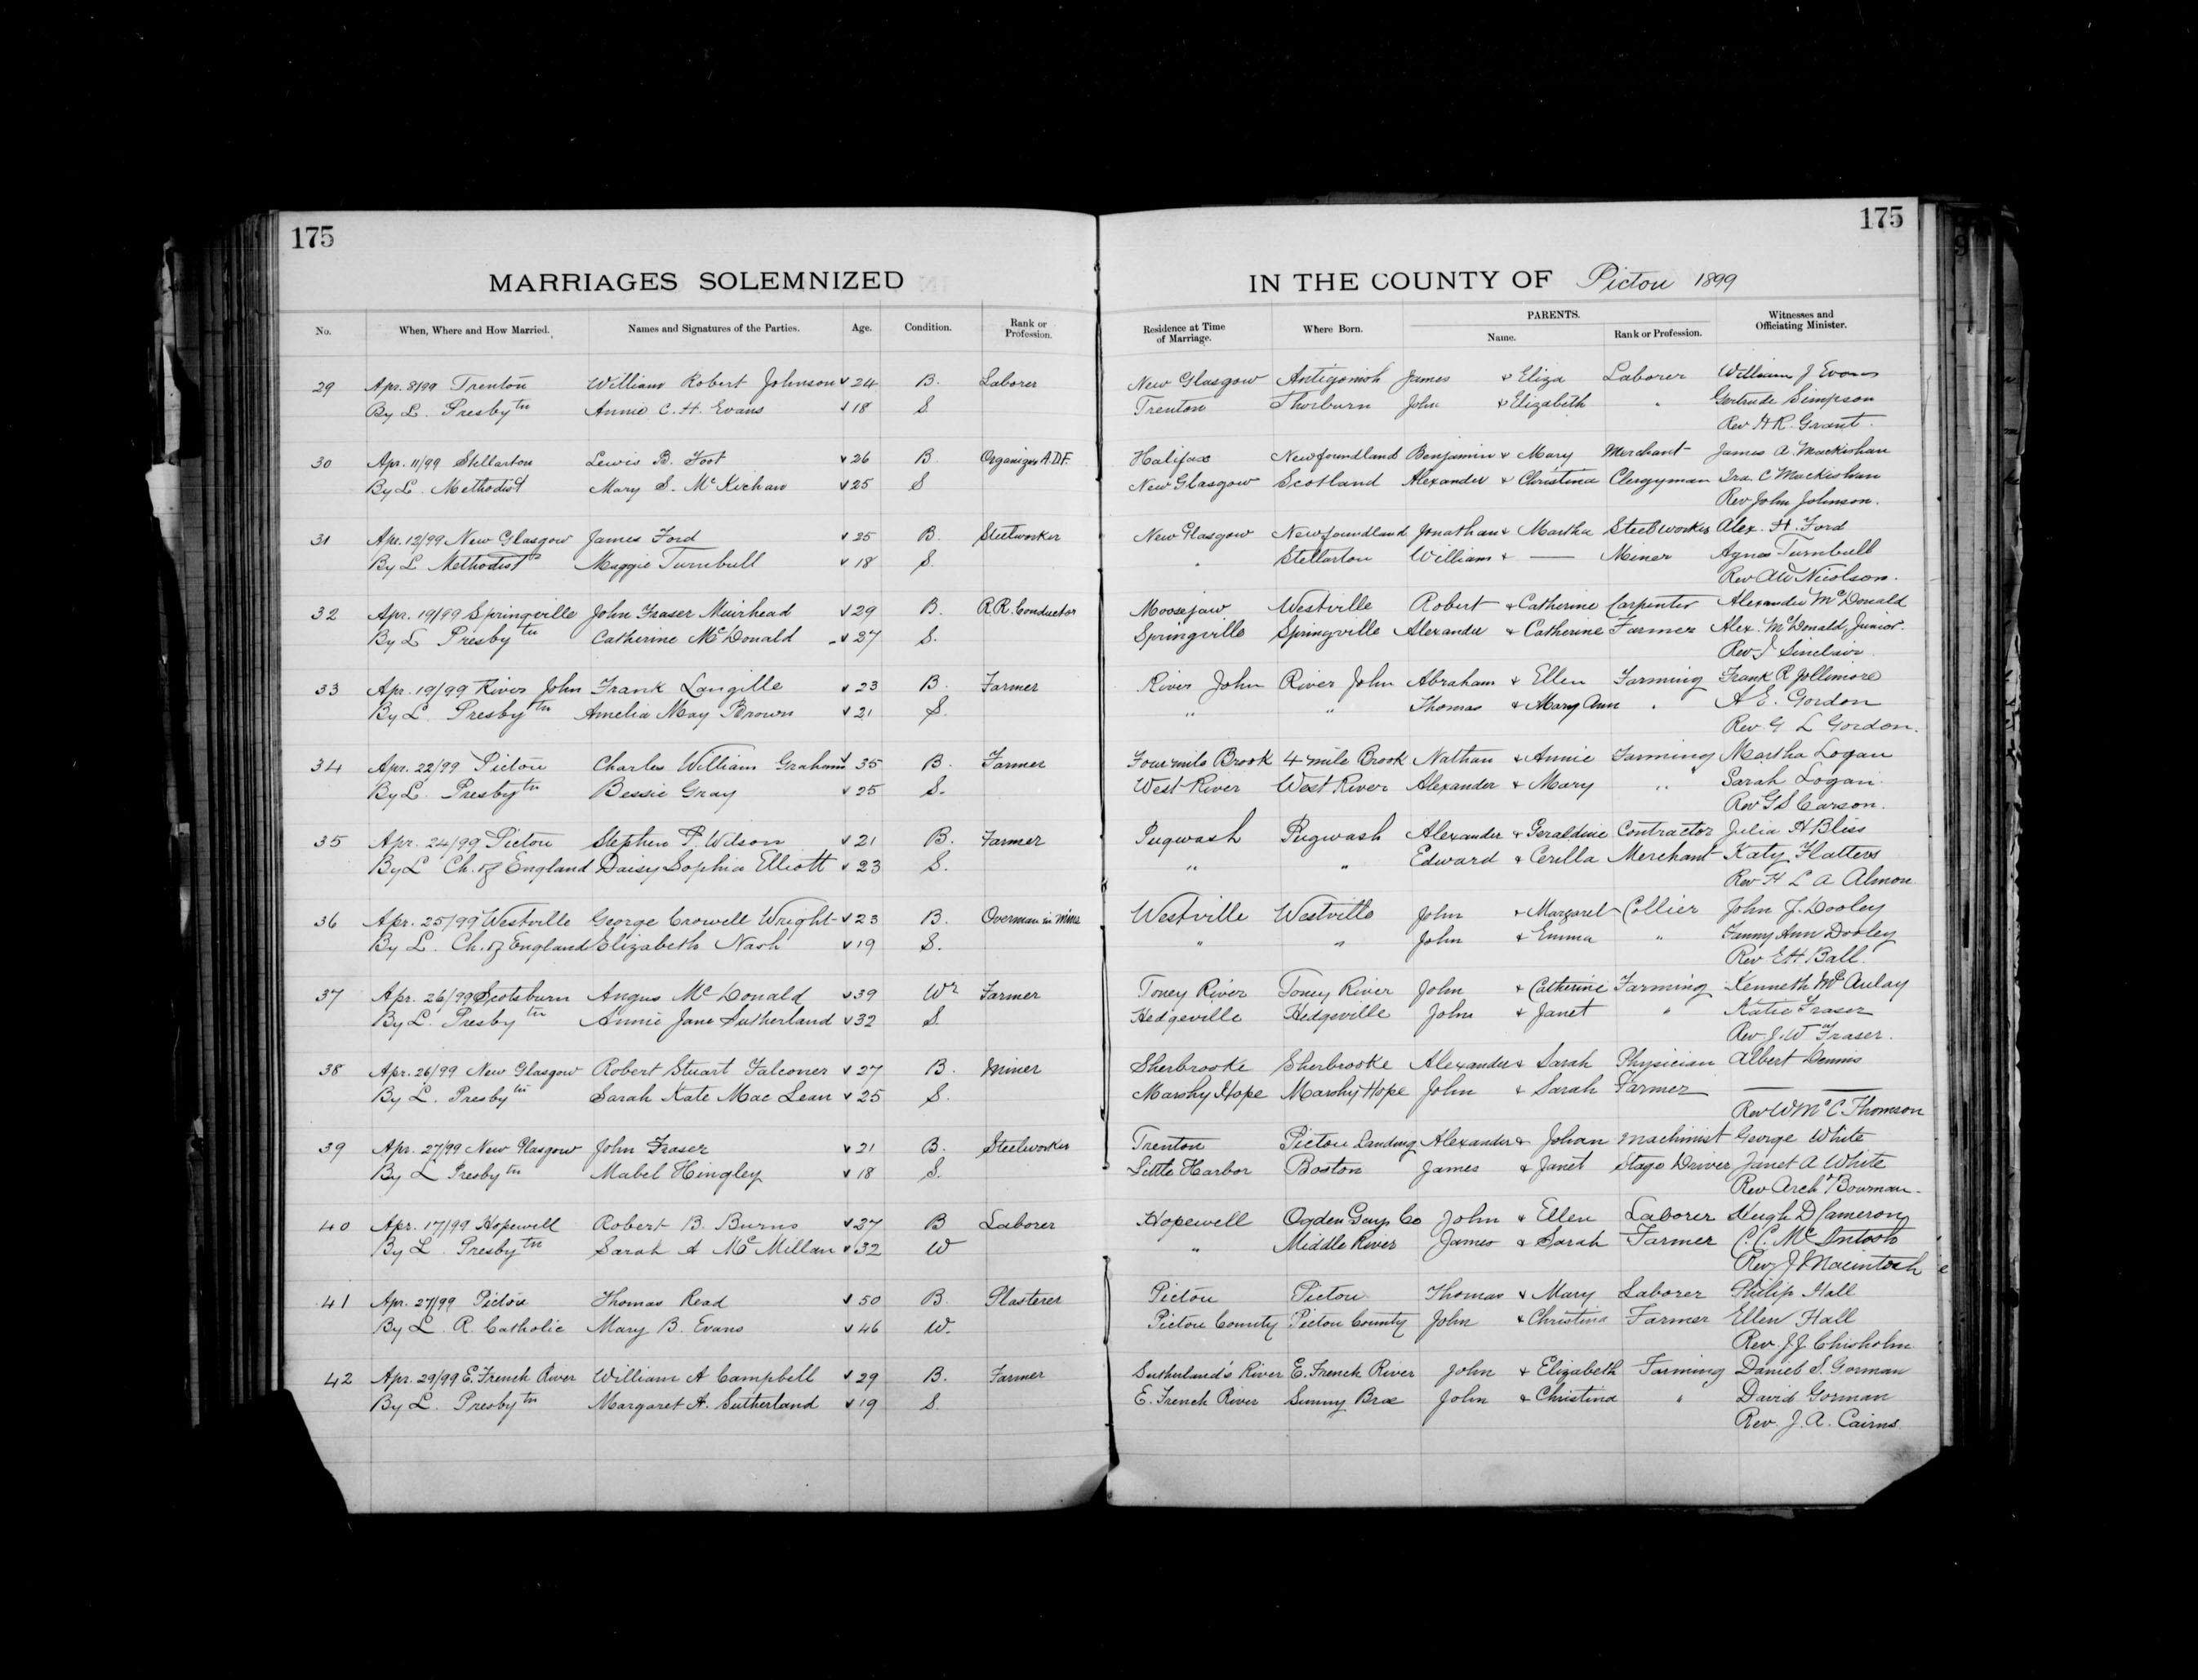 175 175
MARRIAGES SOLEMNIZED IN THE COUNTY OF Pictou 1899
No. When, Where and How Married. Names and Signatures of the Parties. Age. Condition. Rank or Profession. Residence at Time of Marriage. Where Born. PARENTS. Name. Rank or Profession. Witnesses and Officiating Minister.
29 Apr. 8/99 Trenton William Robert Johnson 24 B. Laborer New Glasgow Antigonish James & Eliza Laborer William J Evans
By L. Presbytn Annie C. H. Evans 18 S Trenton Thorburn John & Elizabeth " Gertrude Simpson
Rev H R. Grant.
30 Apr. 11/99 Stellarton Lewis B. Foot 26 B. Organizer A.D.F. Halifax Newfoundland Benjamin & Mary Merchant James A. Mackishan
By L. Methodist Mary S. McKichan 25 S New Glasgow Scotland Alexander & Christina Clergyman Ira. C Mackishan
Rev John Johnson.
31 Apr. 12/99 New Glasgow James Ford 25 B. Steelworker New Glasgow Newfoundland Jonathan & Martha Steelworker Alex. H. Ford
By L Methodist Maggie Turnbull 18 S. " Stellarton William & — Miner Agnes Turnbull
Rev AW Nicolson.
32 Apr. 19/99 Springville John Fraser Muirhead 29 B. R.R. Conductor Moosejaw Westville Robert & Catherine Carpenter Alexander McDonald
By L Presbytn Catherine McDonald 27 S. Springville Springville Alexander & Catherine Farmer Alex. McDonald, Junior.
Rev J Sinclair.
33 Apr. 19/99 River John Frank Langille 23 B. Farmer River John River John Abraham & Ellen Farming Frank R Jollimore
By L. Presbytn Amelia May Brown 21 S. " " Thomas & Mary Ann " A E. Gordon
Rev G L Gordon.
34 Apr. 22/99 Pictou Charles William Graham 35 B. Farmer Four mile Brook 4 mile Brook Nathan & Annie Farming Martha Logan
By L. Presbytn Bessie Gray 25 S. West River West River Alexander & Mary " Sarah Logan.
Rev G S Carson.
35 Apr. 24/99 Pictou Stephen P. Wilson 21 B. Farmer Pugwash Pugwash Alexander & Geraldine Contractor Julia H Bliss
By L Ch. of England Daisy Sophia Elliott 23 S. " " Edward & Cerilla Merchant Katy Flatters
Rev H L A Almon
36 Apr. 25/99 Westville George Crowell Wright 23 B. Overman in Mine Westville Westville John & Margaret Collier John J. Dooley
By L. Ch. of England Elizabeth Nash 19 S. " " John & Emma " Fanny Ann Dooley
Rev E H Ball.
37 Apr. 26/99 Scotsburn Angus McDonald 39 Wr Farmer Toney River Toney River John & Catherine Farming Kenneth McAulay
By L. Presbytn Annie Jane Sutherland 32 S. Hedgeville Hedgeville John & Janet " Katie Fraser
Rev. J. W Fraser.
38 Apr. 26/99 New Glasgow Robert Stuart Falconer 27 B. Miner Sherbrooke Sherbrooke Alexander & Sarah Physician Albert Dennis
By L. Presbytn Sarah Kate Mac Lean 25 S. Marshy Hope Marshy Hope John & Sarah Farmer — —
Rev W McC Thomson
39 Apr. 27/99 New Glasgow John Fraser 21 B. Steelworker Trenton Pictou Landing Alexander & Johan Machinist George White
By L Presbytn Mabel Hingley 18 S. Little Harbor Boston James & Janet Stage Driver Janet A White
Rev Arch Bowman.
40 Apr. 17/99 Hopewell Robert B. Burns 37 B Laborer Hopewell Ogden Guys Co John & Ellen Laborer Hugh D Cameron
By L. Presbytn Sarah A McMillan 32 W " Middle River James & Sarah Farmer C. C. McIntosh
Rev J Macintosh
41 Apr. 27/99 Pictou Thomas Read 50 B. Plasterer Pictou Pictou Thomas & Mary Laborer Philip Hall
By L. R. Catholic Mary B. Evans 46 W. Pictou County Pictou County John & Christina Farmer Ellen Hall
Rev. J.J. Chisholm
42 Apr. 29/99 E. French River William A Campbell 29 B. Farmer Sutherland's River E. French River John & Elizabeth Farming Daniel S. Gorman
By L. Presbytn Margaret A. Sutherland 19 S. E. French River Sunny Brae John & Christina " David Gorman
Rev. J. A. Cairns